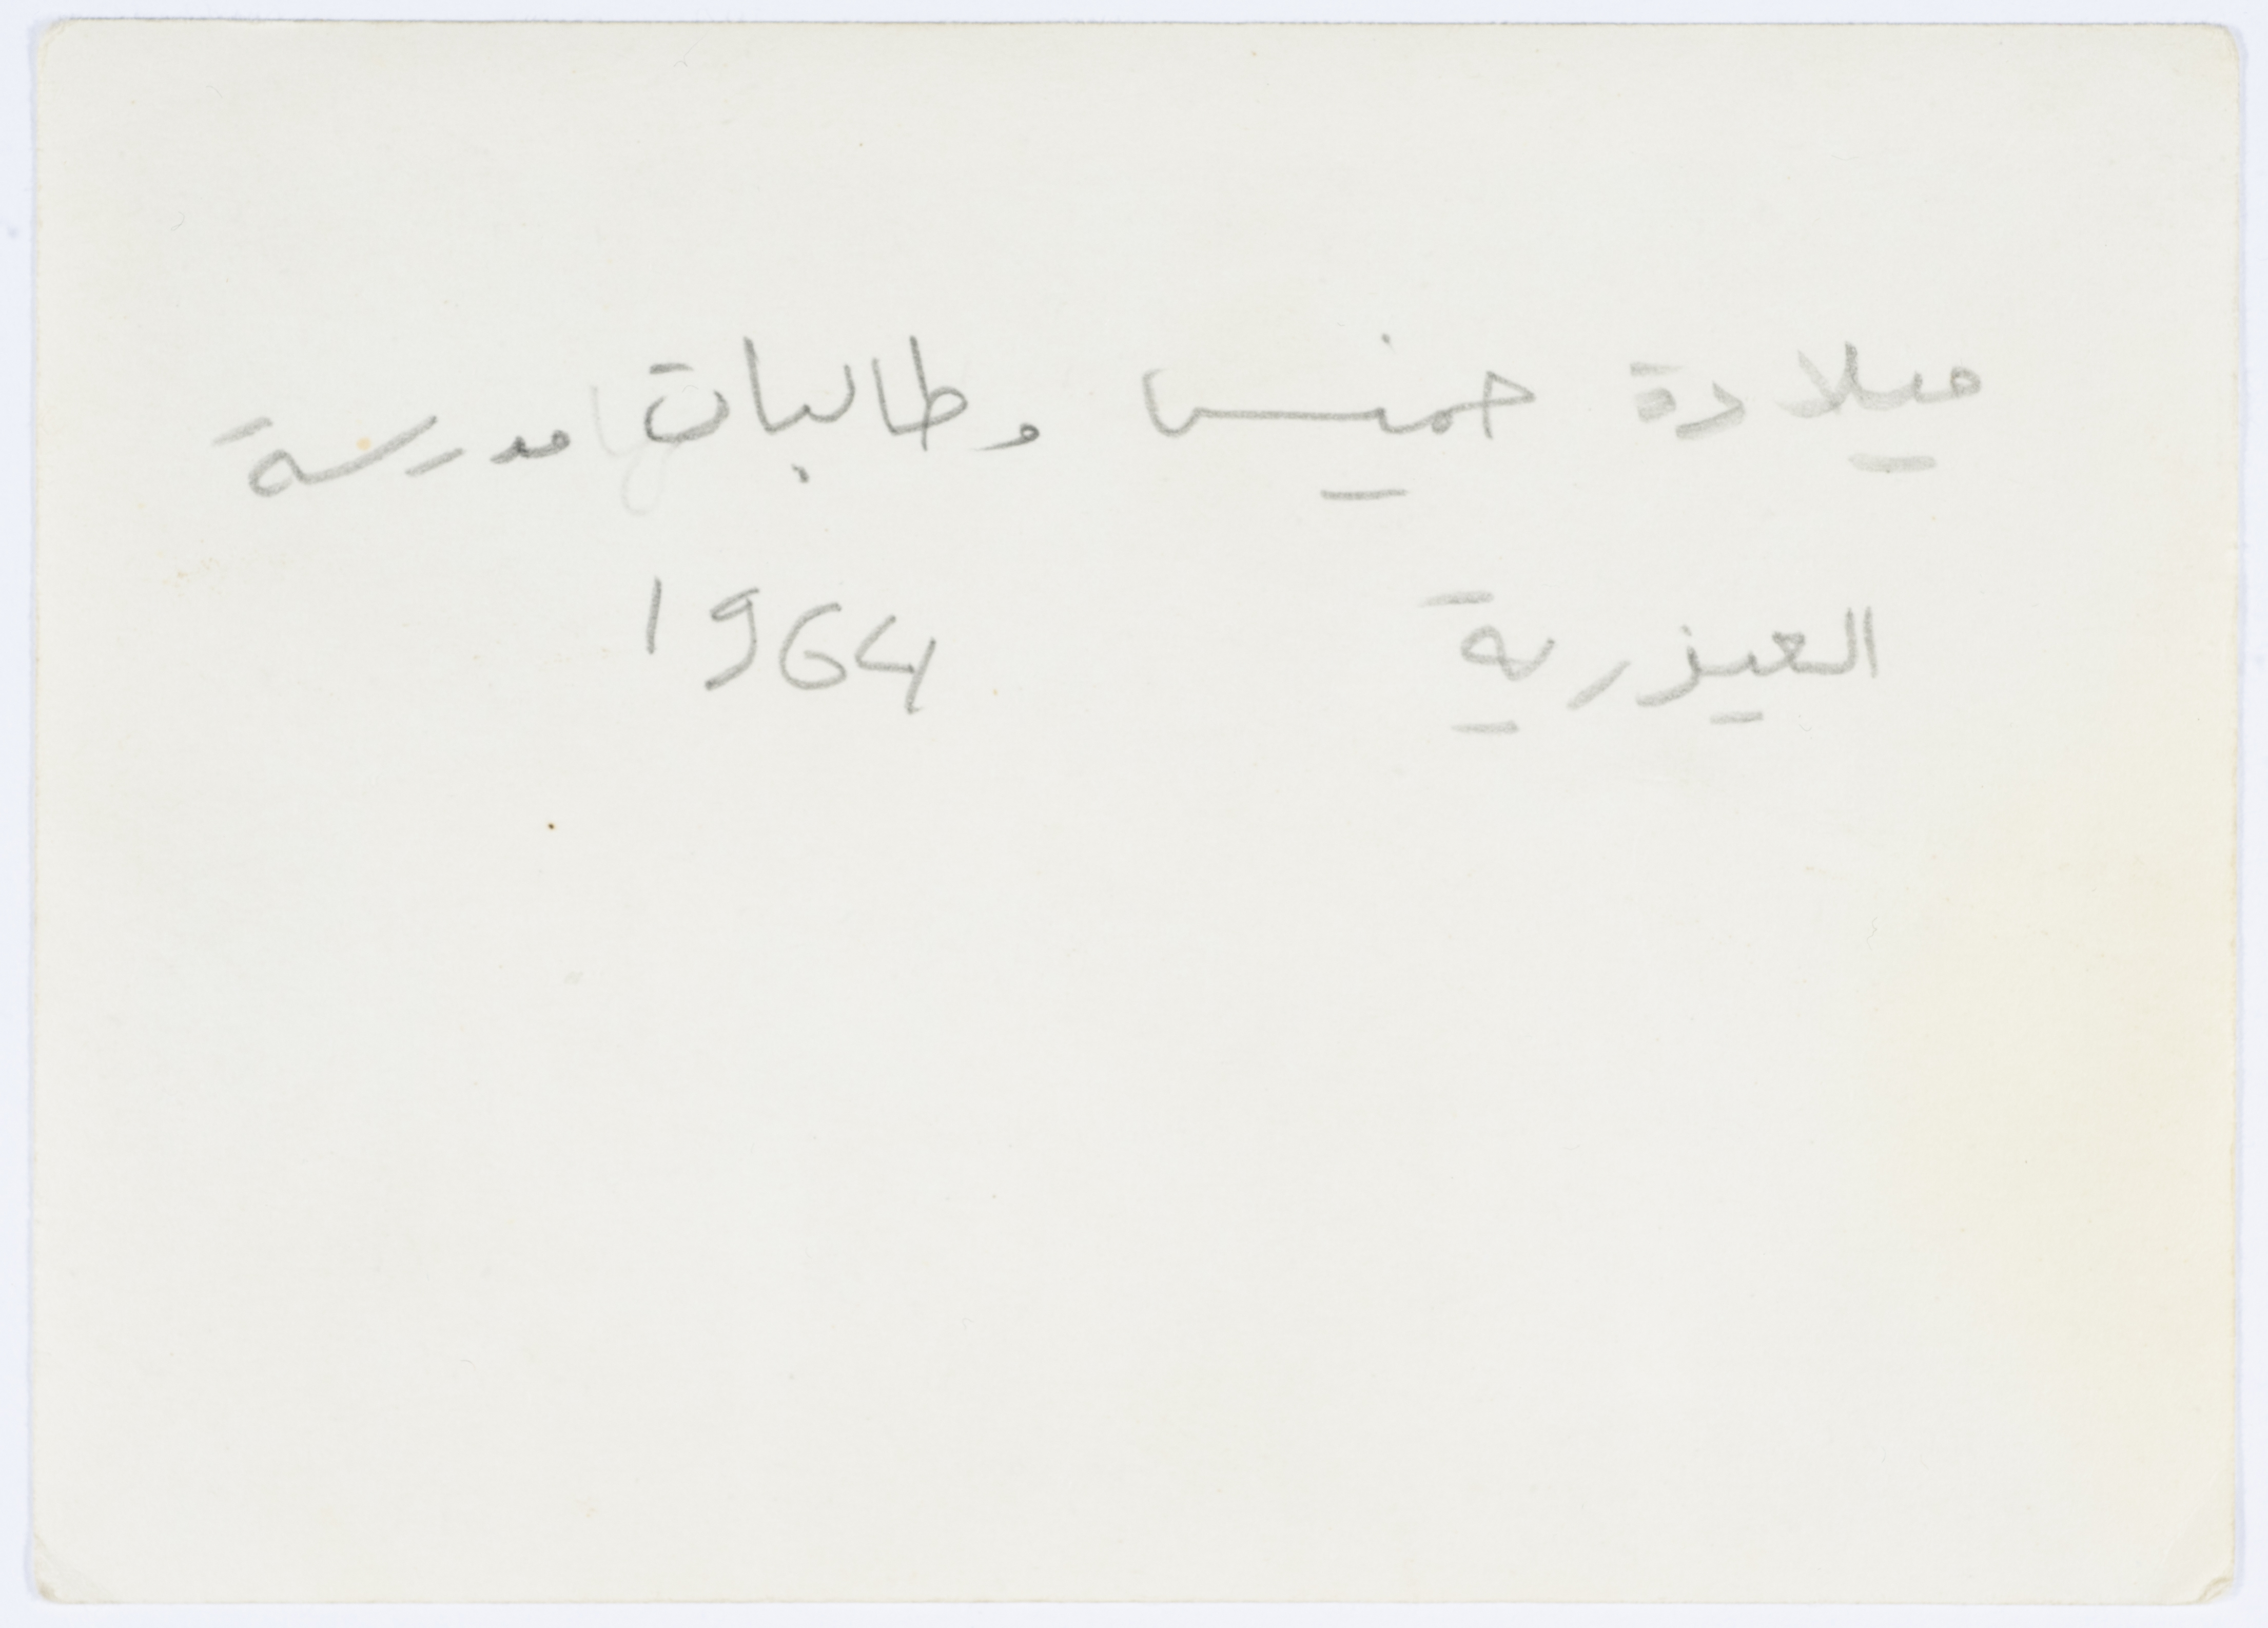 ميلادة خميس وطالبات مدرسة
العيزرية 1964